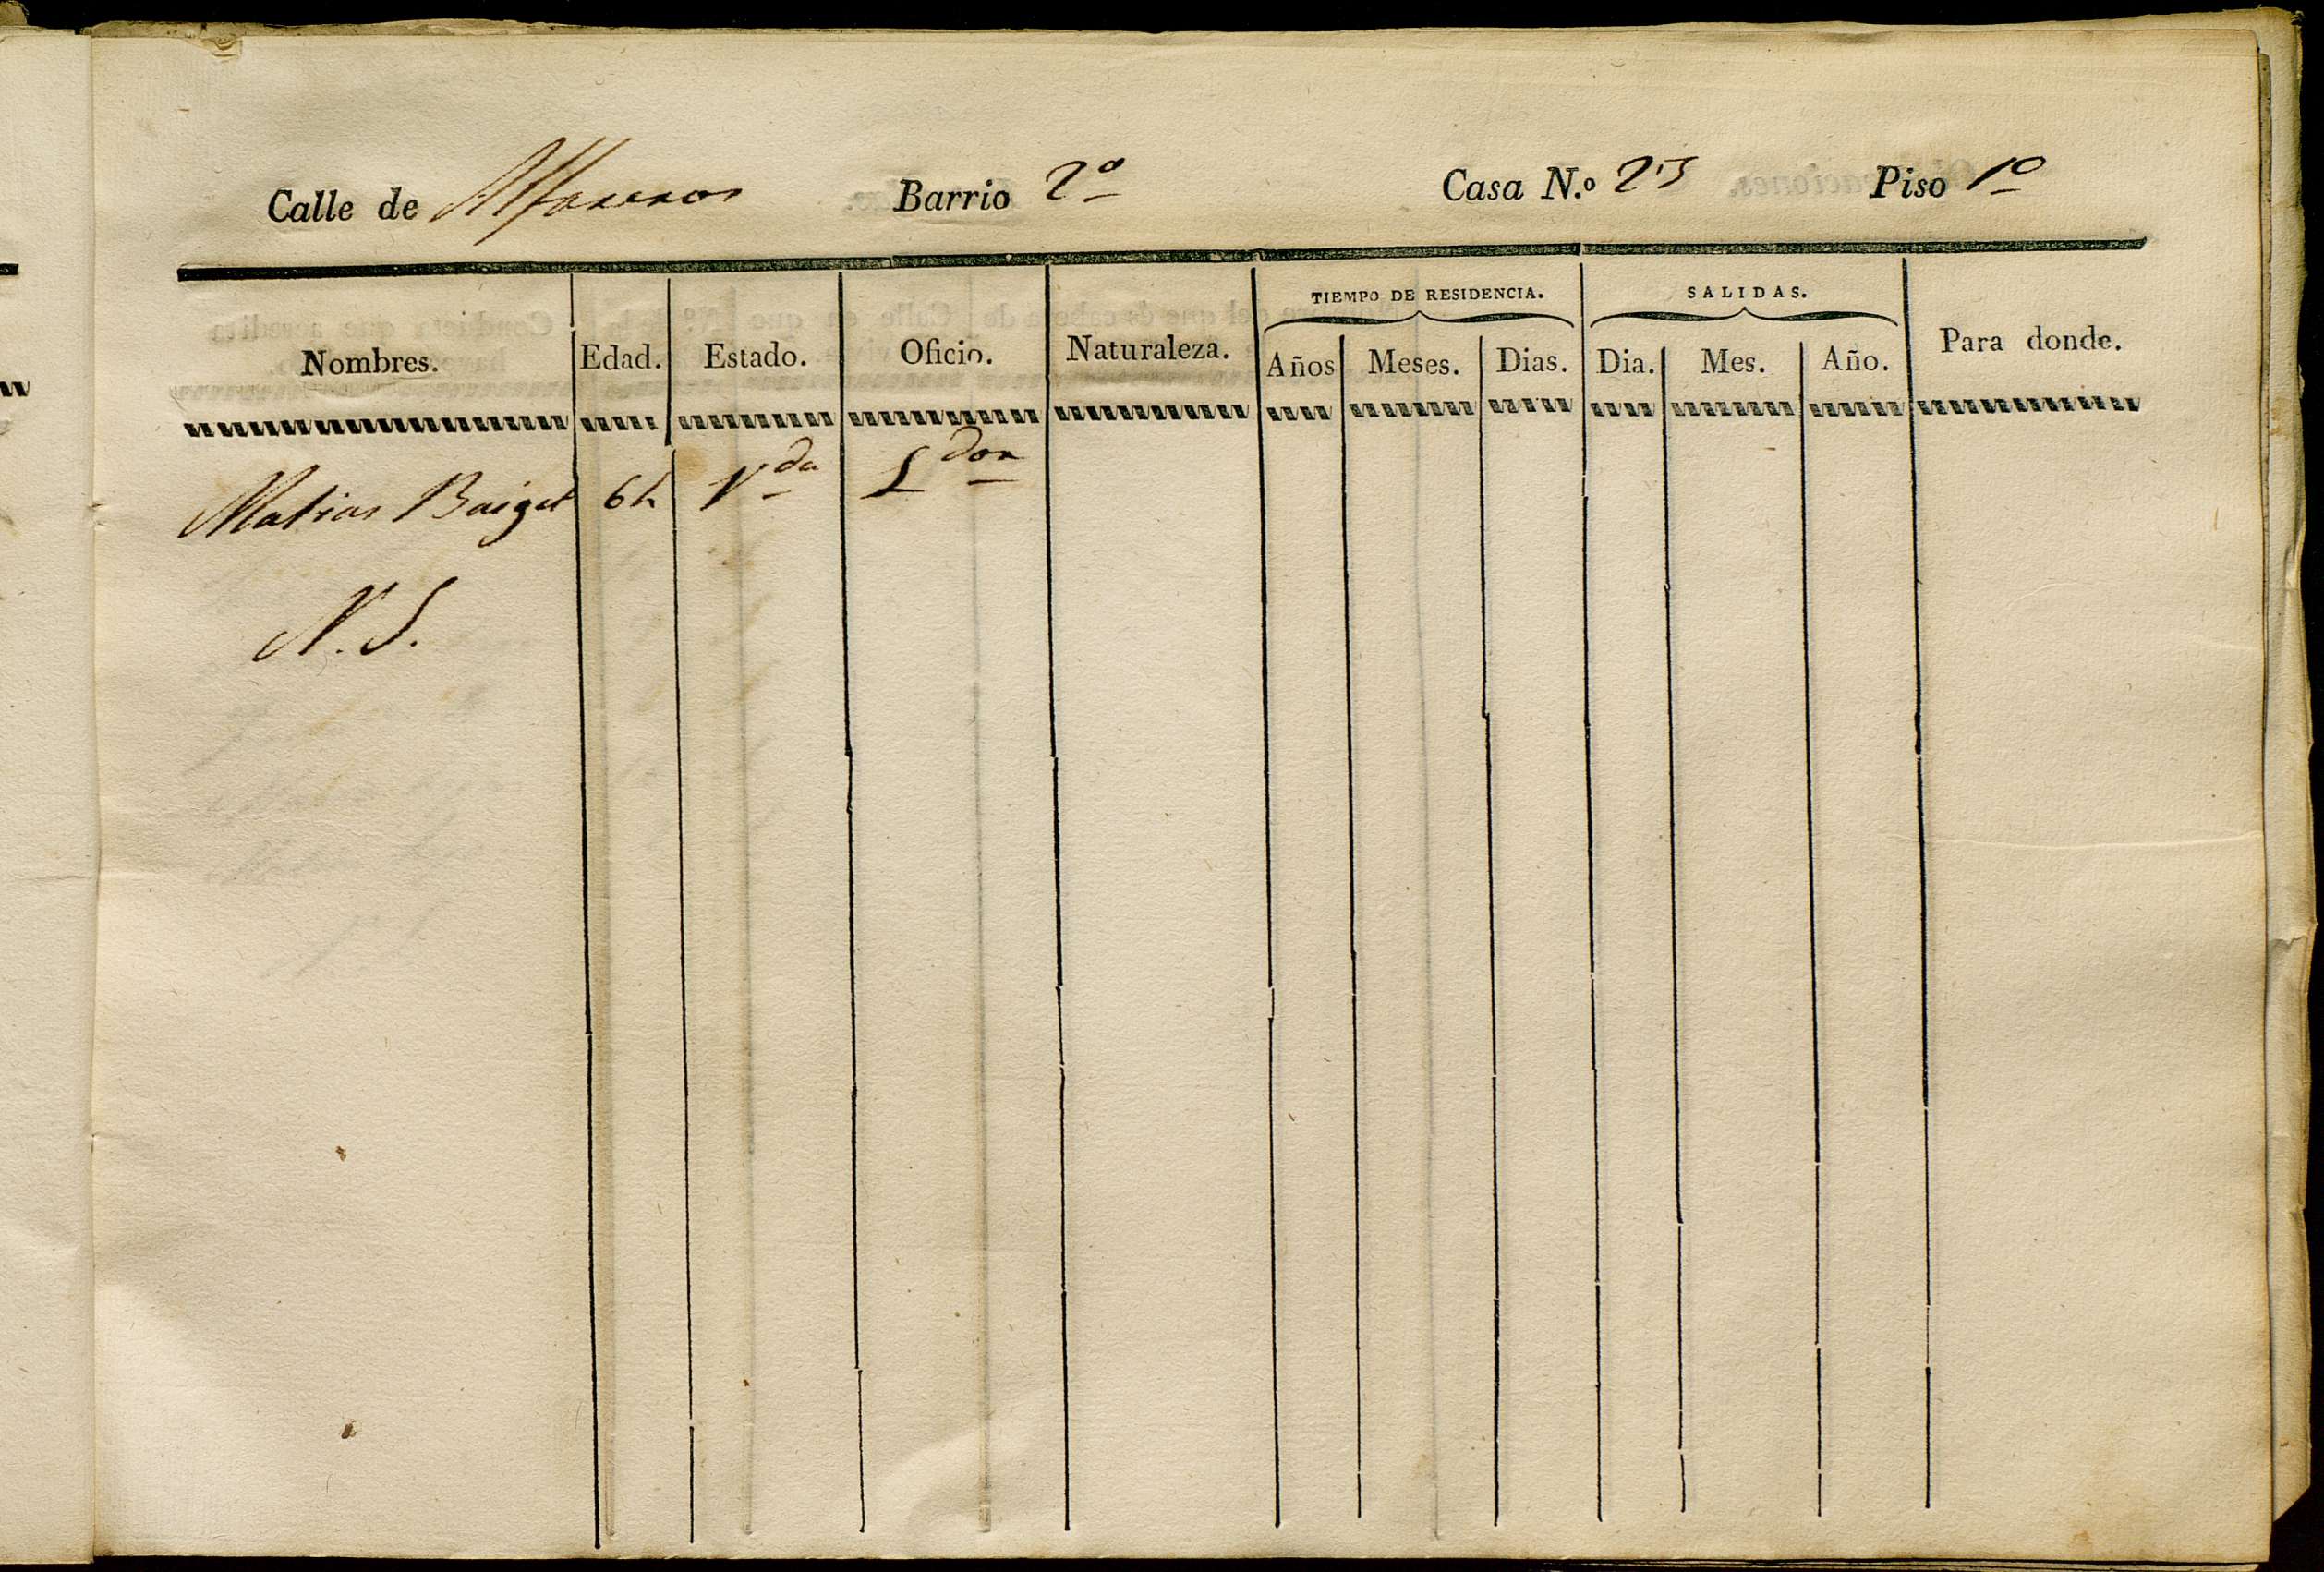 Calle de Alfareros Barrio 2º Casa N.º 23 Piso 1º
TIEMPO DE RESIDENCIA. SALIDAS.
Nombres. Edad. Estado. Oficio. Naturaleza. Años Meses. Dias. Dia. Mes. Año. Para donde.
Matias Baiget 64 Vdo Ldor
N. S.